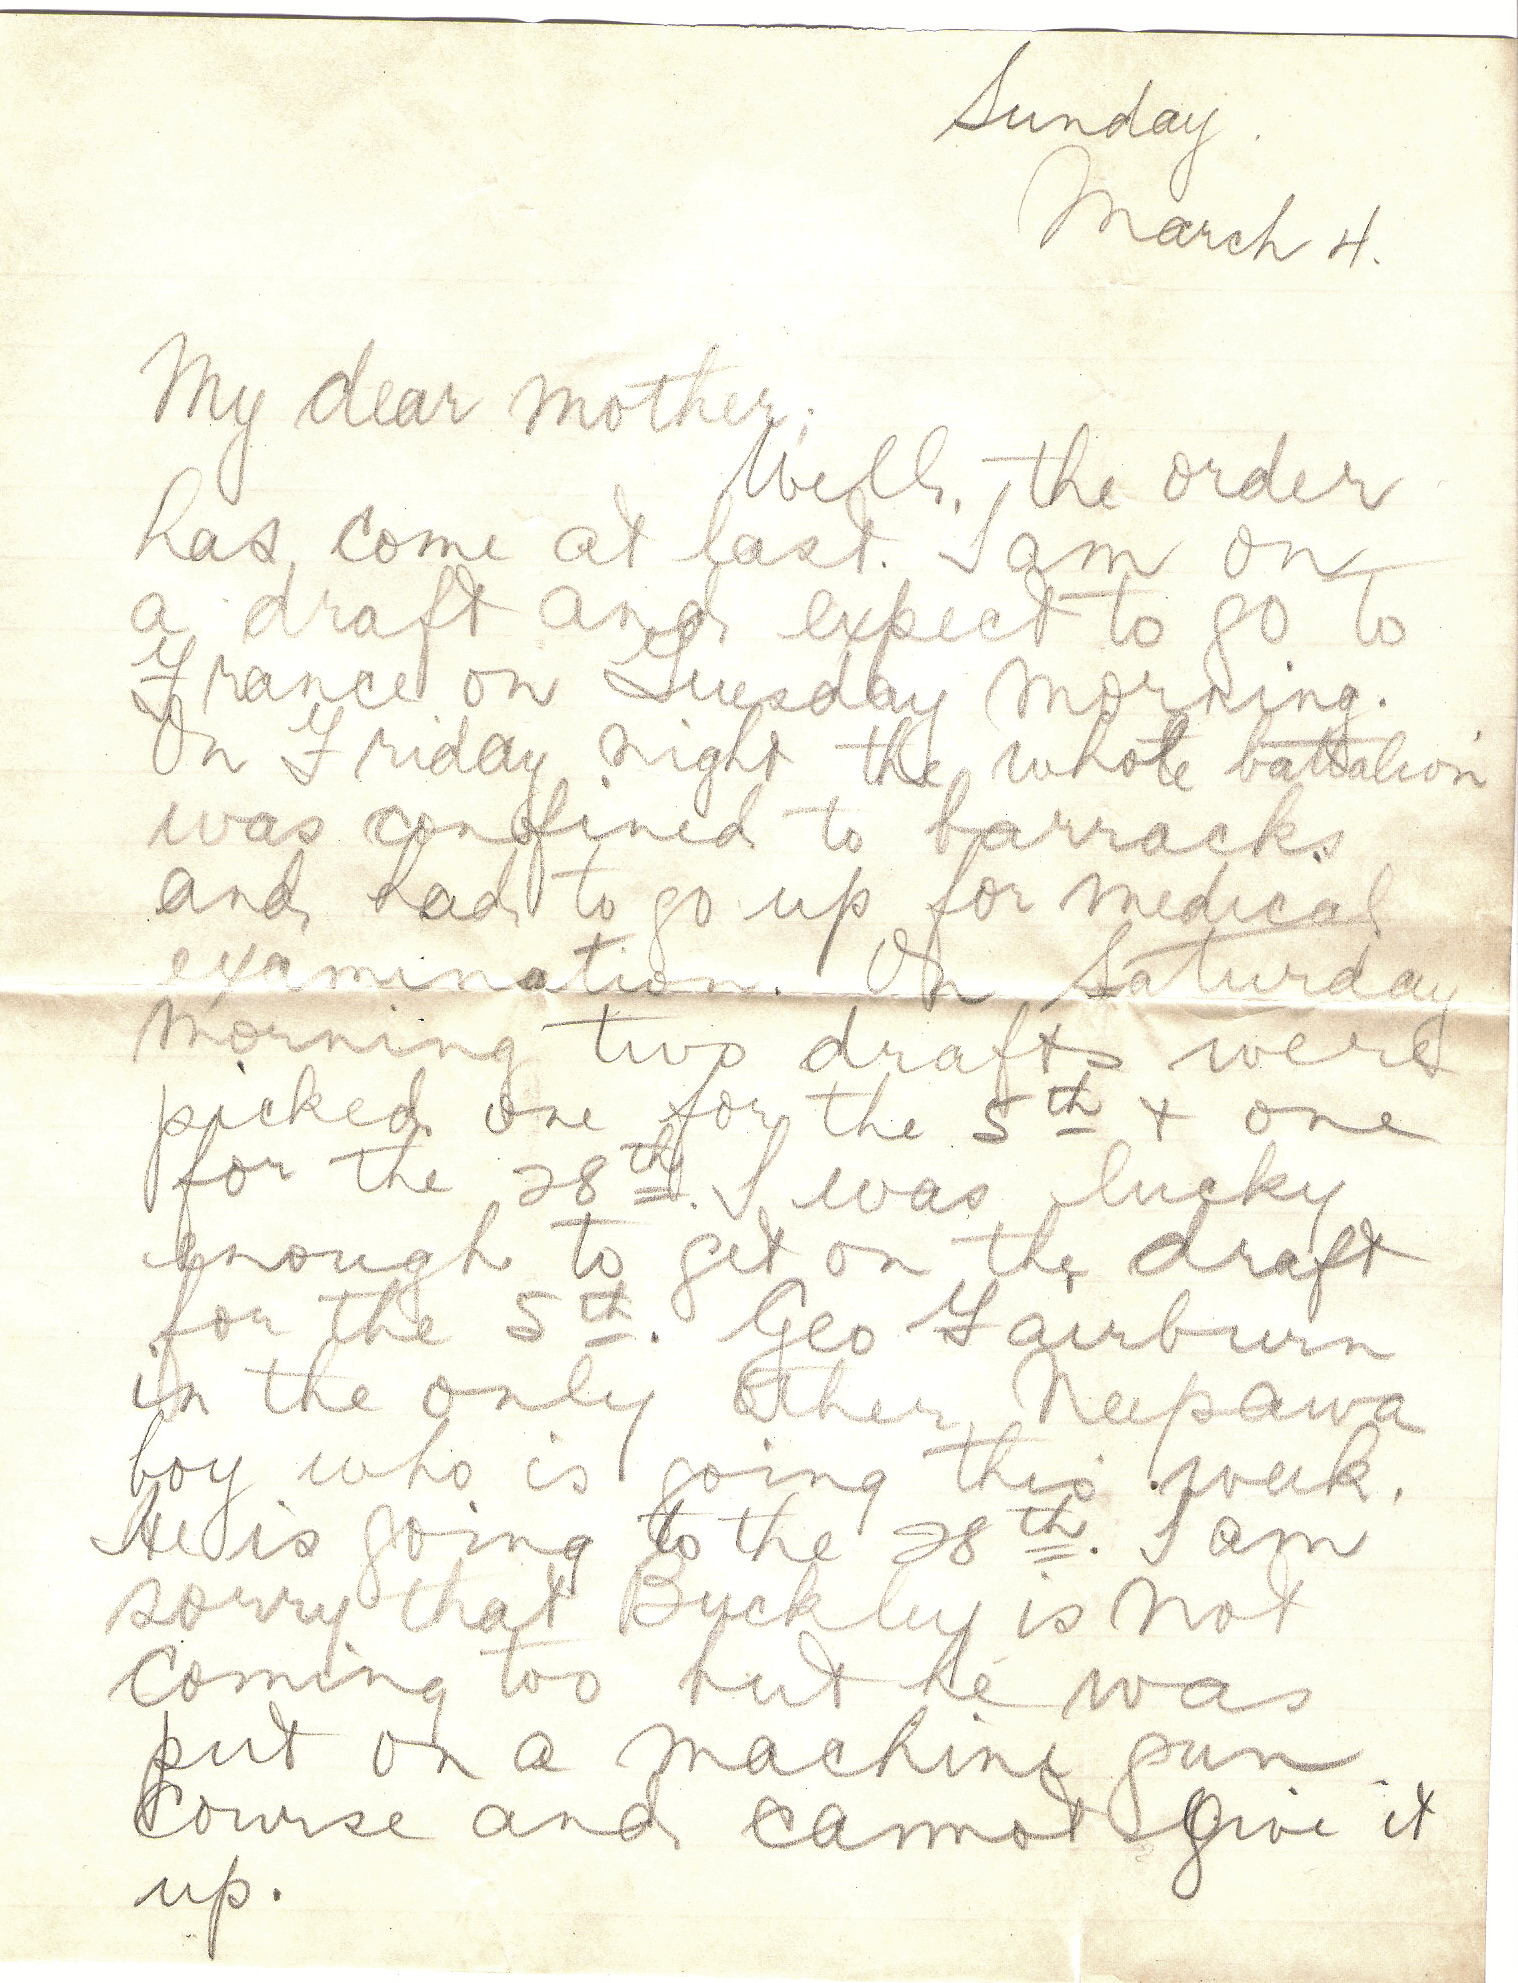 Sunday.
March 4.
My dear mother;
Well, the order
has come at last. I am on
a draft and expect to go to
France on Tuesday morning.
On Friday night the whole battalion
was confined to barracks
and had to go up for medical
examination. On Saturday
morning two drafts were
picked one for the 5th & one
for the 28th. I was lucky
enough to get on the draft
for the 5th. Geo Fairburn
in the only other Neepawa
boy who is going this week.
He is going to the 28th. I am
sorry that Buckley is not
coming too but he was
put on a machine gun
course and cannot give it
up.